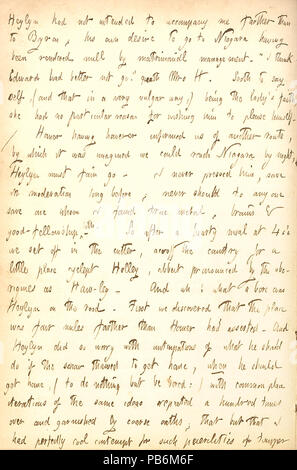 Heylyn had not intended to accompany me farther than
to Byron, his own desire to go to Niagara having
been rendered null by matrimonial management. "I think
Edward had better not go," quoth Mrs H. Sooth to say
self (and that in a very vulgar way) being the lady's
she had no particular reason for wishing him to please himself.
Homer having however informed us of another route,
by which it was imagined we could reach Niagara by night,
Heylyn must fain go. I never pressed him, save
in moderation long before, never should to any one
save one whom I found true metal, brains &
good-fellowship. So after a hearty meal at 4
we set off in the cutter, across the country for a
little place yclept Holley, about pronounced by the
as Haw-ley. And oh! what a bore was
Heylyn on the road. First we discovered that the place
was four miles farther than Homer had asserted. And
Heylyn did so worry with anticipations of what he should
do if the snow thawed to get home, when he should
get home, (to do nothing but be bored!) with common place
iterations of the same ideas repeated a hundred times
over and garnished by coarse oaths, that but that I
had perfectly cool contempt for such puerilities of
alamy
PB6M6F